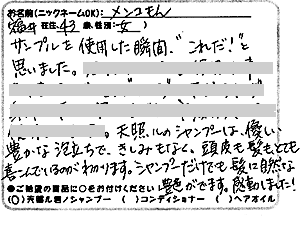 お名前(ニックネームOK): メンコもん
福井 在住、43 歳、性別: 女 )
サンプルを使用した瞬間、“これだ!”と
思いました。
天照ルのシャンプーは、優しい
豊かな泡立ちで、きしみもなく、頭皮も髪もとても
喜んでいるのがわかります。シャンプーだけでも髪に自然な
●ご希望の商品に○をお付けください 艶がでます。感動しました!
(○)天照ル君ノシャンプー ( )コンディショナー ( )ヘアオイル